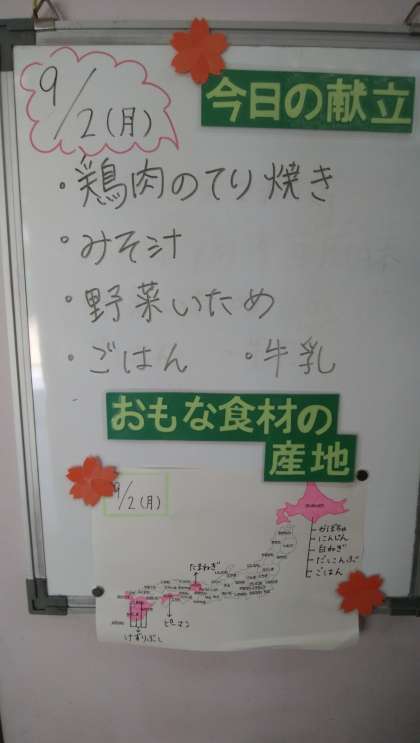 9/2(月)
今日の献立
・鶏肉のてり焼き
・みそ汁
・野菜いため
・ごはん ・牛乳
おもな食材の
産地
9/2(月)
かぼちゃ
にんじん
白ねぎ
だいこんぶ
ごはん
たまねぎ
ピーマン
けずりぶし